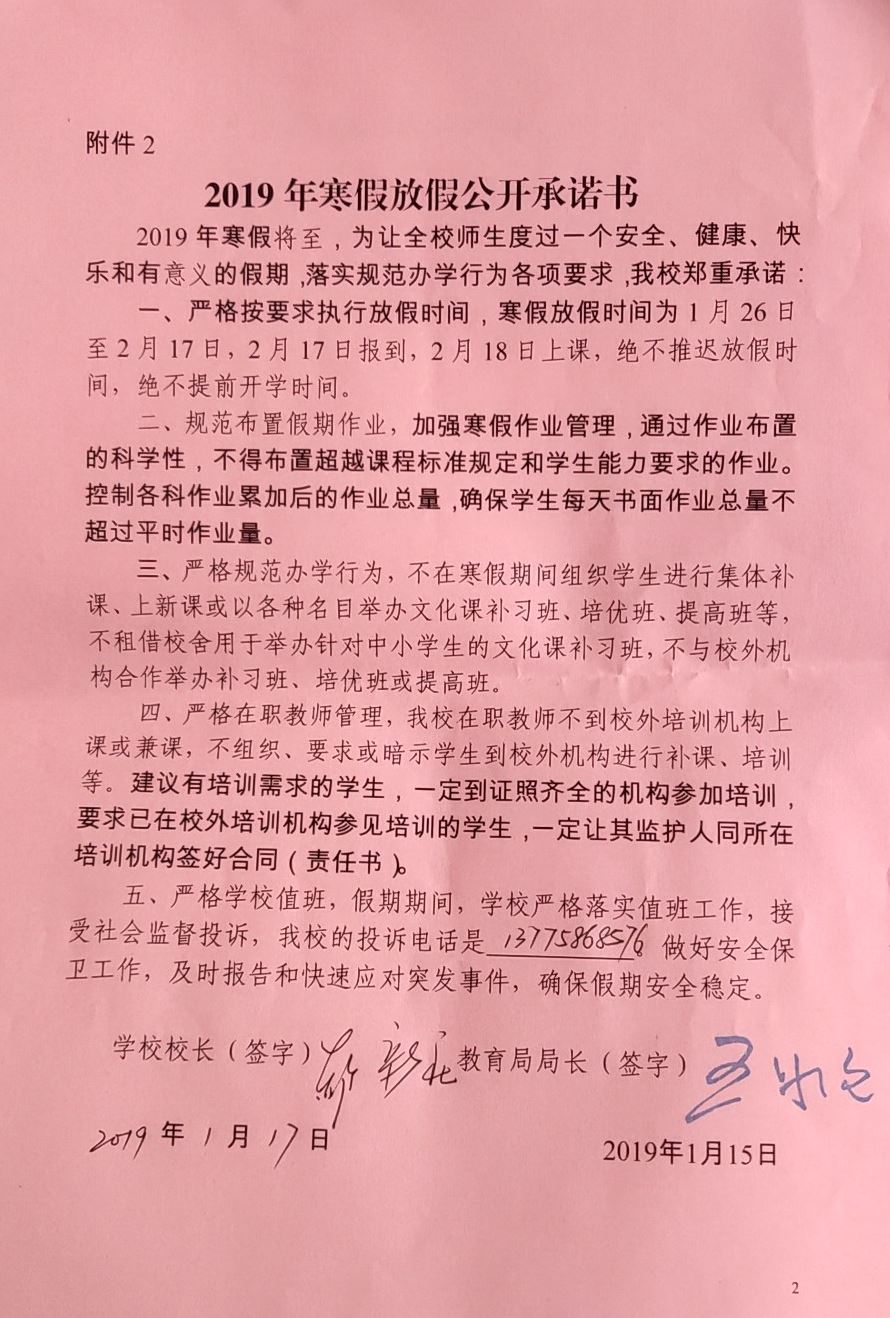 附件 2
2019 年寒假放假公开承诺书
2019 年寒假将至，为让全校师生度过一个安全、健康、快
乐和有意义的假期，落实规范办学行为各项要求，我校郑重承诺：
一、严格按要求执行放假时间，寒假放假时间为 1 月 26 日
至 2 月 17 日，2 月 17 日报到，2 月 18 日上课，绝不推迟放假时
间，绝不提前开学时间。
二、规范布置假期作业，加强寒假作业管理，通过作业布置
的科学性，不得布置超越课程标准规定和学生能力要求的作业。
控制各科作业累加后的作业总量，确保学生每天书面作业总量不
超过平时作业量。
三、严格规范办学行为，不在寒假期间组织学生进行集体补
课、上新课或以各种名目举办文化课补习班、培优班、提高班等，
不租借校舍用于举办针对中小学生的文化课补习班，不与校外机
构合作举办补习班、培优班或提高班。
四、严格在职教师管理，我校在职教师不到校外培训机构上
课或兼课，不组织、要求或暗示学生到校外机构进行补课、培训
等。建议有培训需求的学生，一定到证照齐全的机构参加培训，
要求已在校外培训机构参见培训的学生，一定让其监护人同所在
培训机构签好合同（责任书）。
五、严格学校值班，假期期间，学校严格落实值班工作，接
受社会监督投诉，我校的投诉电话是 13775868576 做好安全保
卫工作，及时报告和快速应对突发事件，确保假期安全稳定。
学校校长（签字） 教育局局长（签字）
2019 年 1 月 17 日 2019年1月15日
2